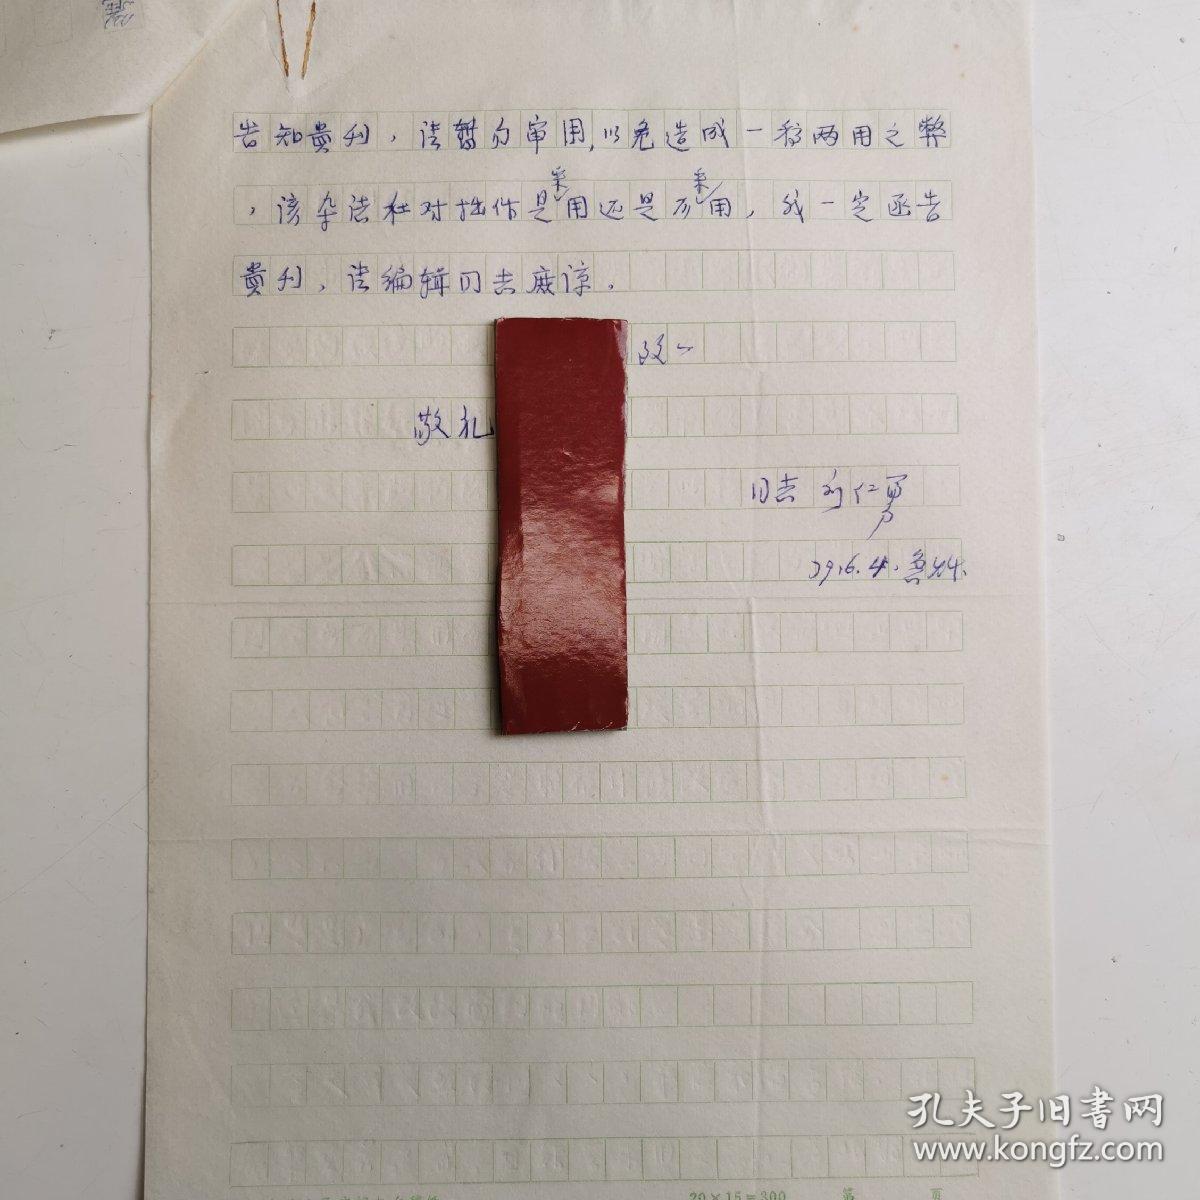 告知貴刊，请暂为审用，以免造成一稿两用之弊
，该杂志社对拙作是采用还是不采用，我一定函告
貴刊，请编辑同志原谅。
致一
敬礼
同志 刘仁勇
79.6.4.
孔夫子旧書网
www.kongfz.com
20×15=300 第 页